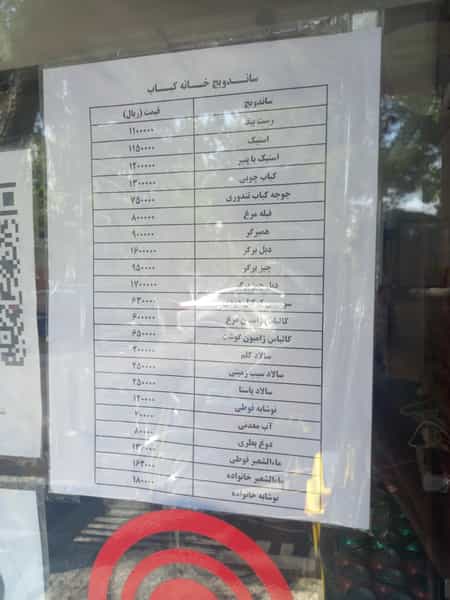 ساندویچ خانه کباب
ساندویچ قیمت (ریال)
رست بیف ۱۱۰۰۰۰۰
استیک ۱۱۵۰۰۰۰
استیک با پنیر ۱۲۰۰۰۰۰
کباب چوبی ۱۳۰۰۰۰۰
جوجه کباب تندوری ۷۵۰۰۰۰
فیله مرغ ۸۰۰۰۰۰
همبرگر ۹۰۰۰۰۰
دبل برگر ۱۶۰۰۰۰۰
چیز برگر ۹۵۰۰۰۰
دبل چیز برگر ۱۷۰۰۰۰۰
۶۳۰۰۰۰
کالباس ژامبون مرغ ۶۰۰۰۰۰
کالباس ژامبون گوشت ۶۵۰۰۰۰
سالاد کلم
سالاد سیب زمینی ۲۵۰۰۰۰
سالاد پاستا ۲۵۰۰۰۰
نوشابه قوطی ۱۲۰۰۰۰
آب معدنی
دوغ بطری ۸۰۰۰۰
ماءالشعیر قوطی
ماءالشعیر خانواده
نوشابه خانواده ۱۸۰۰۰۰